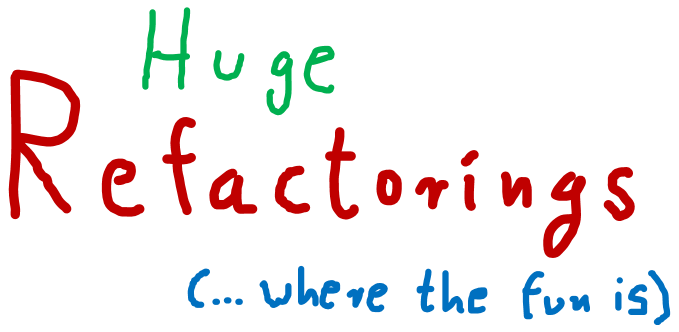 Huge
Refactorings
(... where the fun is)